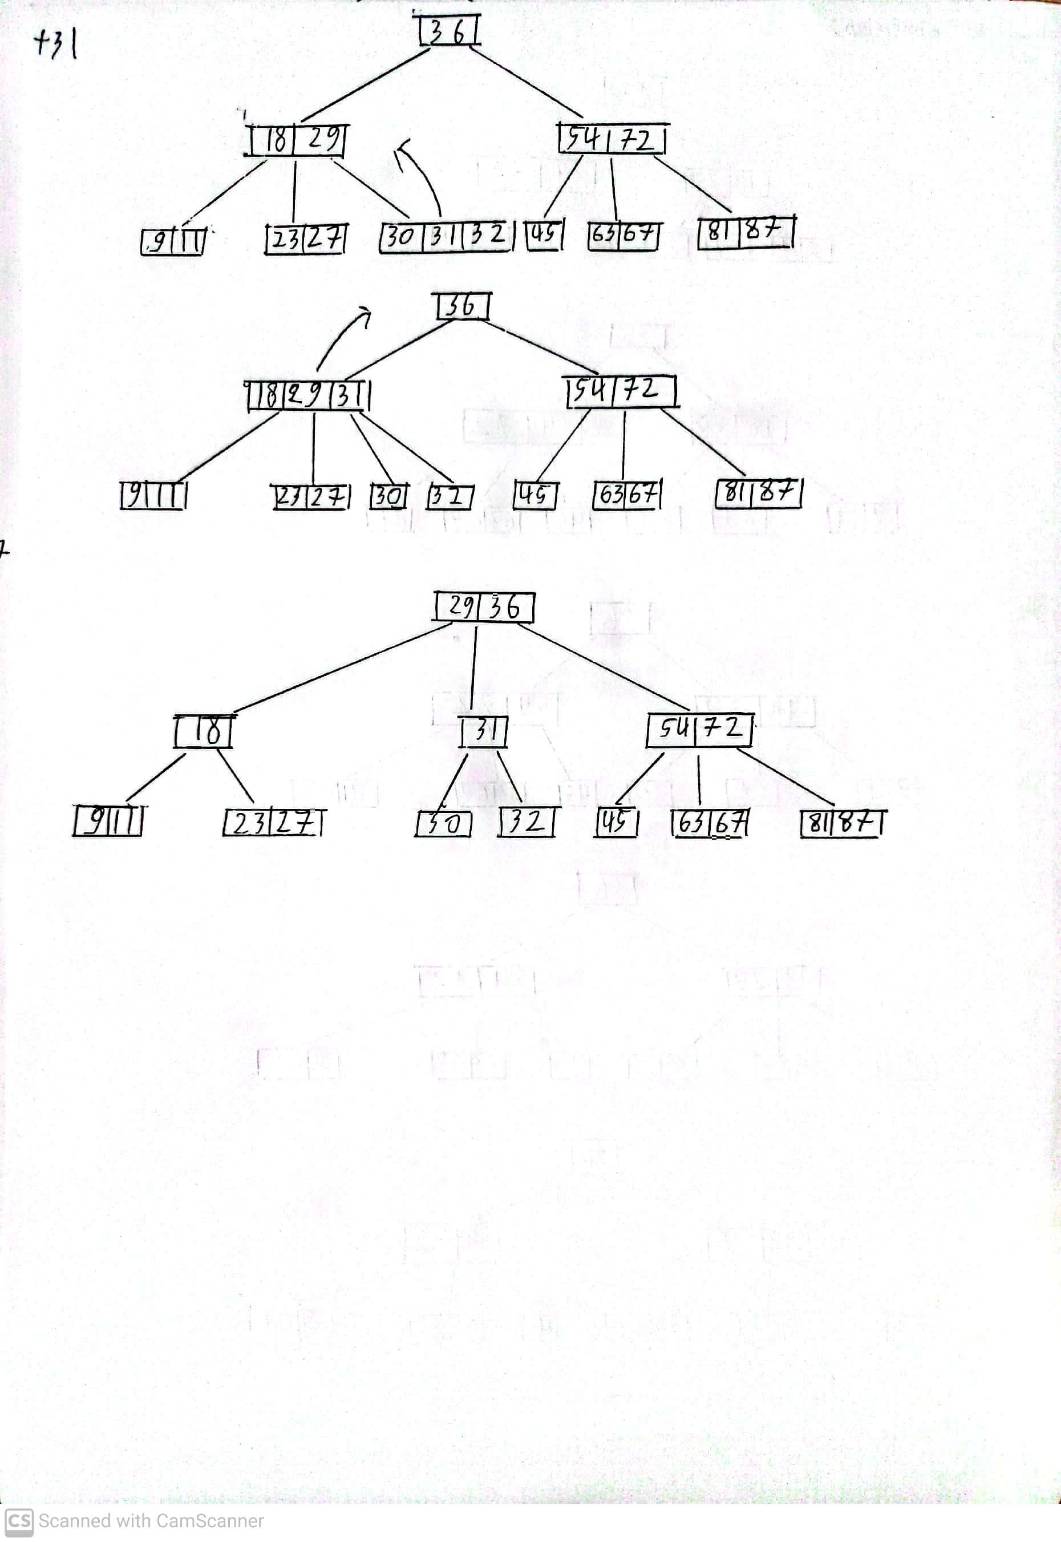 +31
36
18 29 54 72
9 11 23 27 30 31 32 45 63 67 81 87
36
18 29 31 54 72
9 11 23 27 30 32 45 63 67 81 87
29 36
18 31 54 72
9 11 23 27 30 32 45 63 67 81 87
CS Scanned with CamScanner